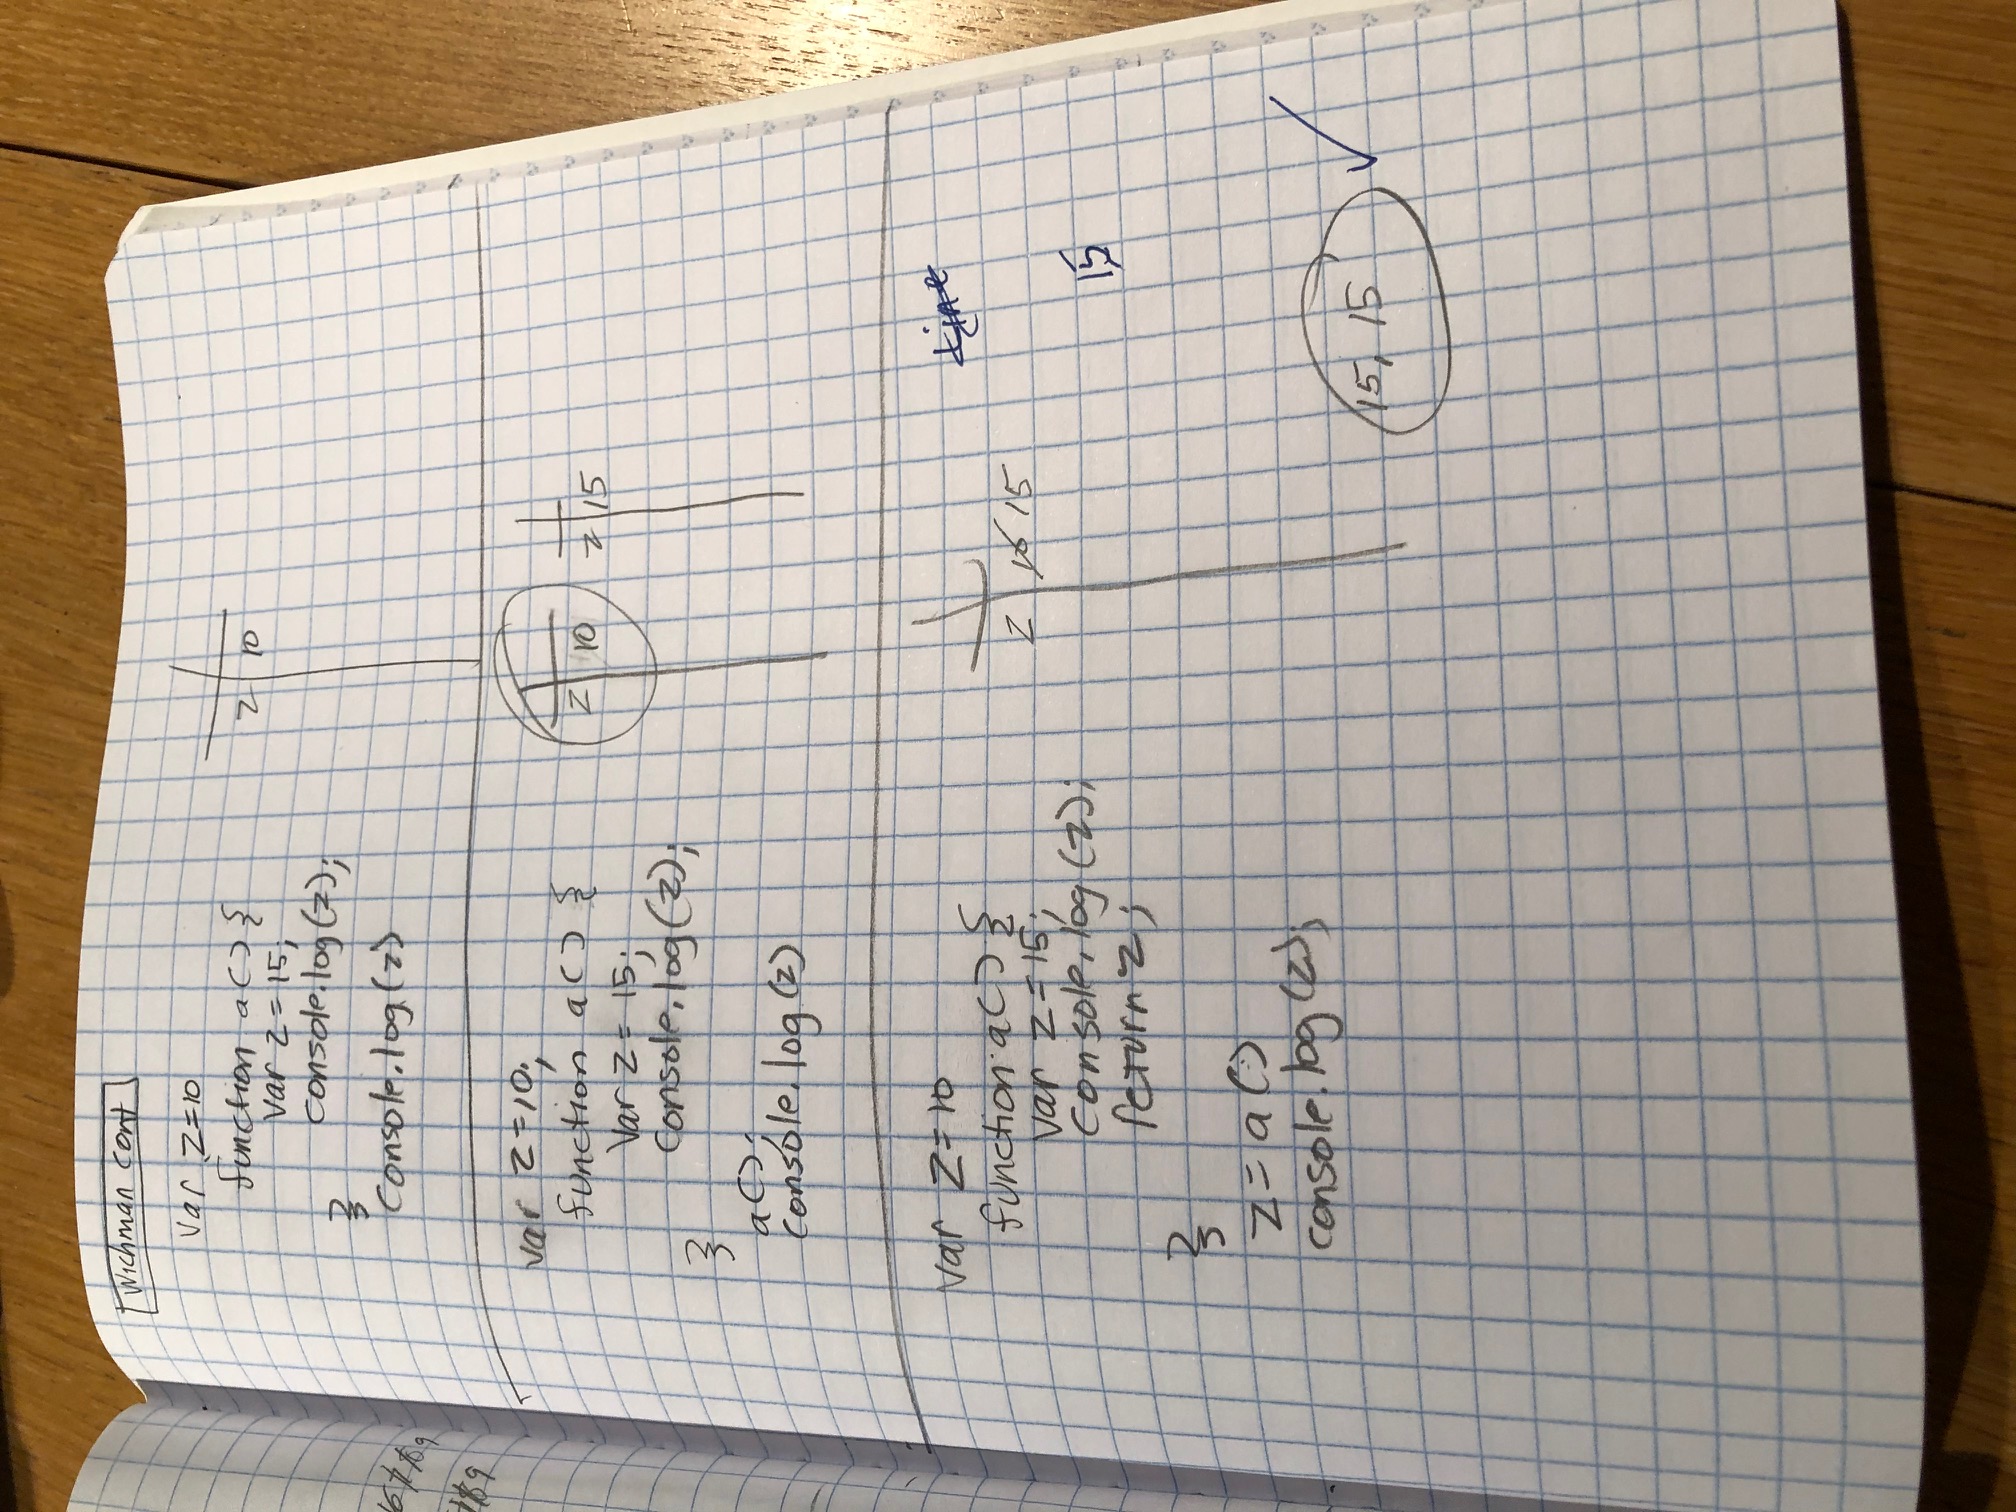 Wichman cont
var z=10
function a() {
var z = 15;
console.log(z);
}
console.log(z)
z 10
var z=10;
function a() {
var z = 15;
console.log(z);
}
a();
console.log(z)
z 10
z 15
var z=10
function a() {
var z = 15;
console.log(z);
return z;
}
z = a()
console.log(z);
z 10 15
15
15, 15